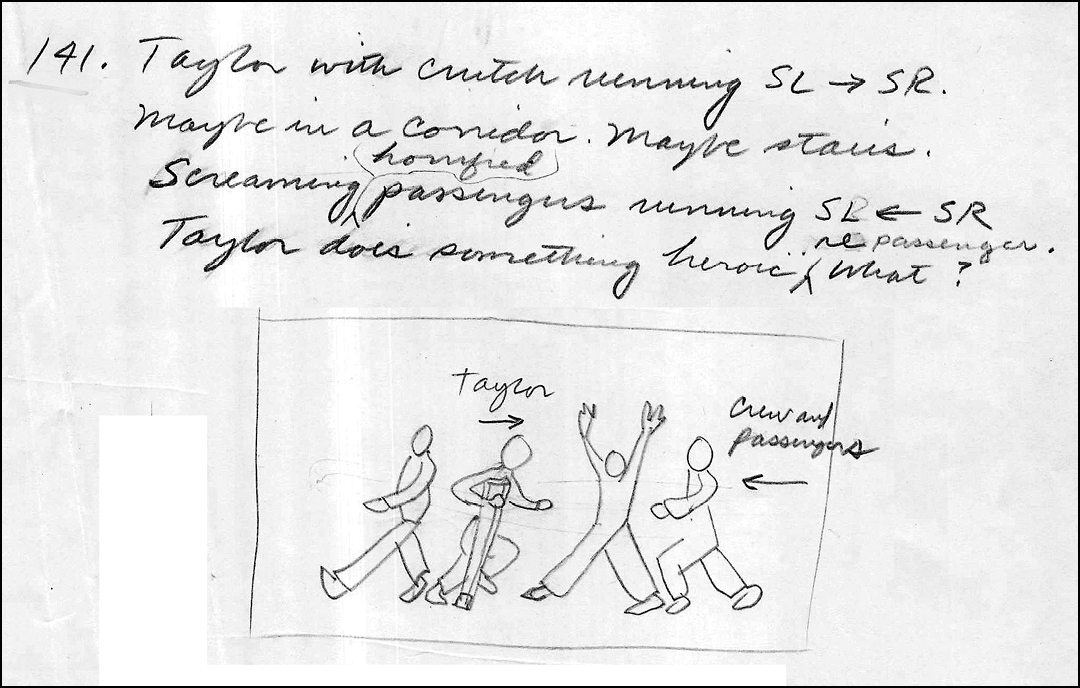 141. Taylor with crutch running SL → SR.
Maybe in a corridor. Maybe stairs.
horrified
Screaming passengers running SL ← SR
re passenger.
Taylor does something heroic, What?
Taylor
→
Crew and
passengers
←